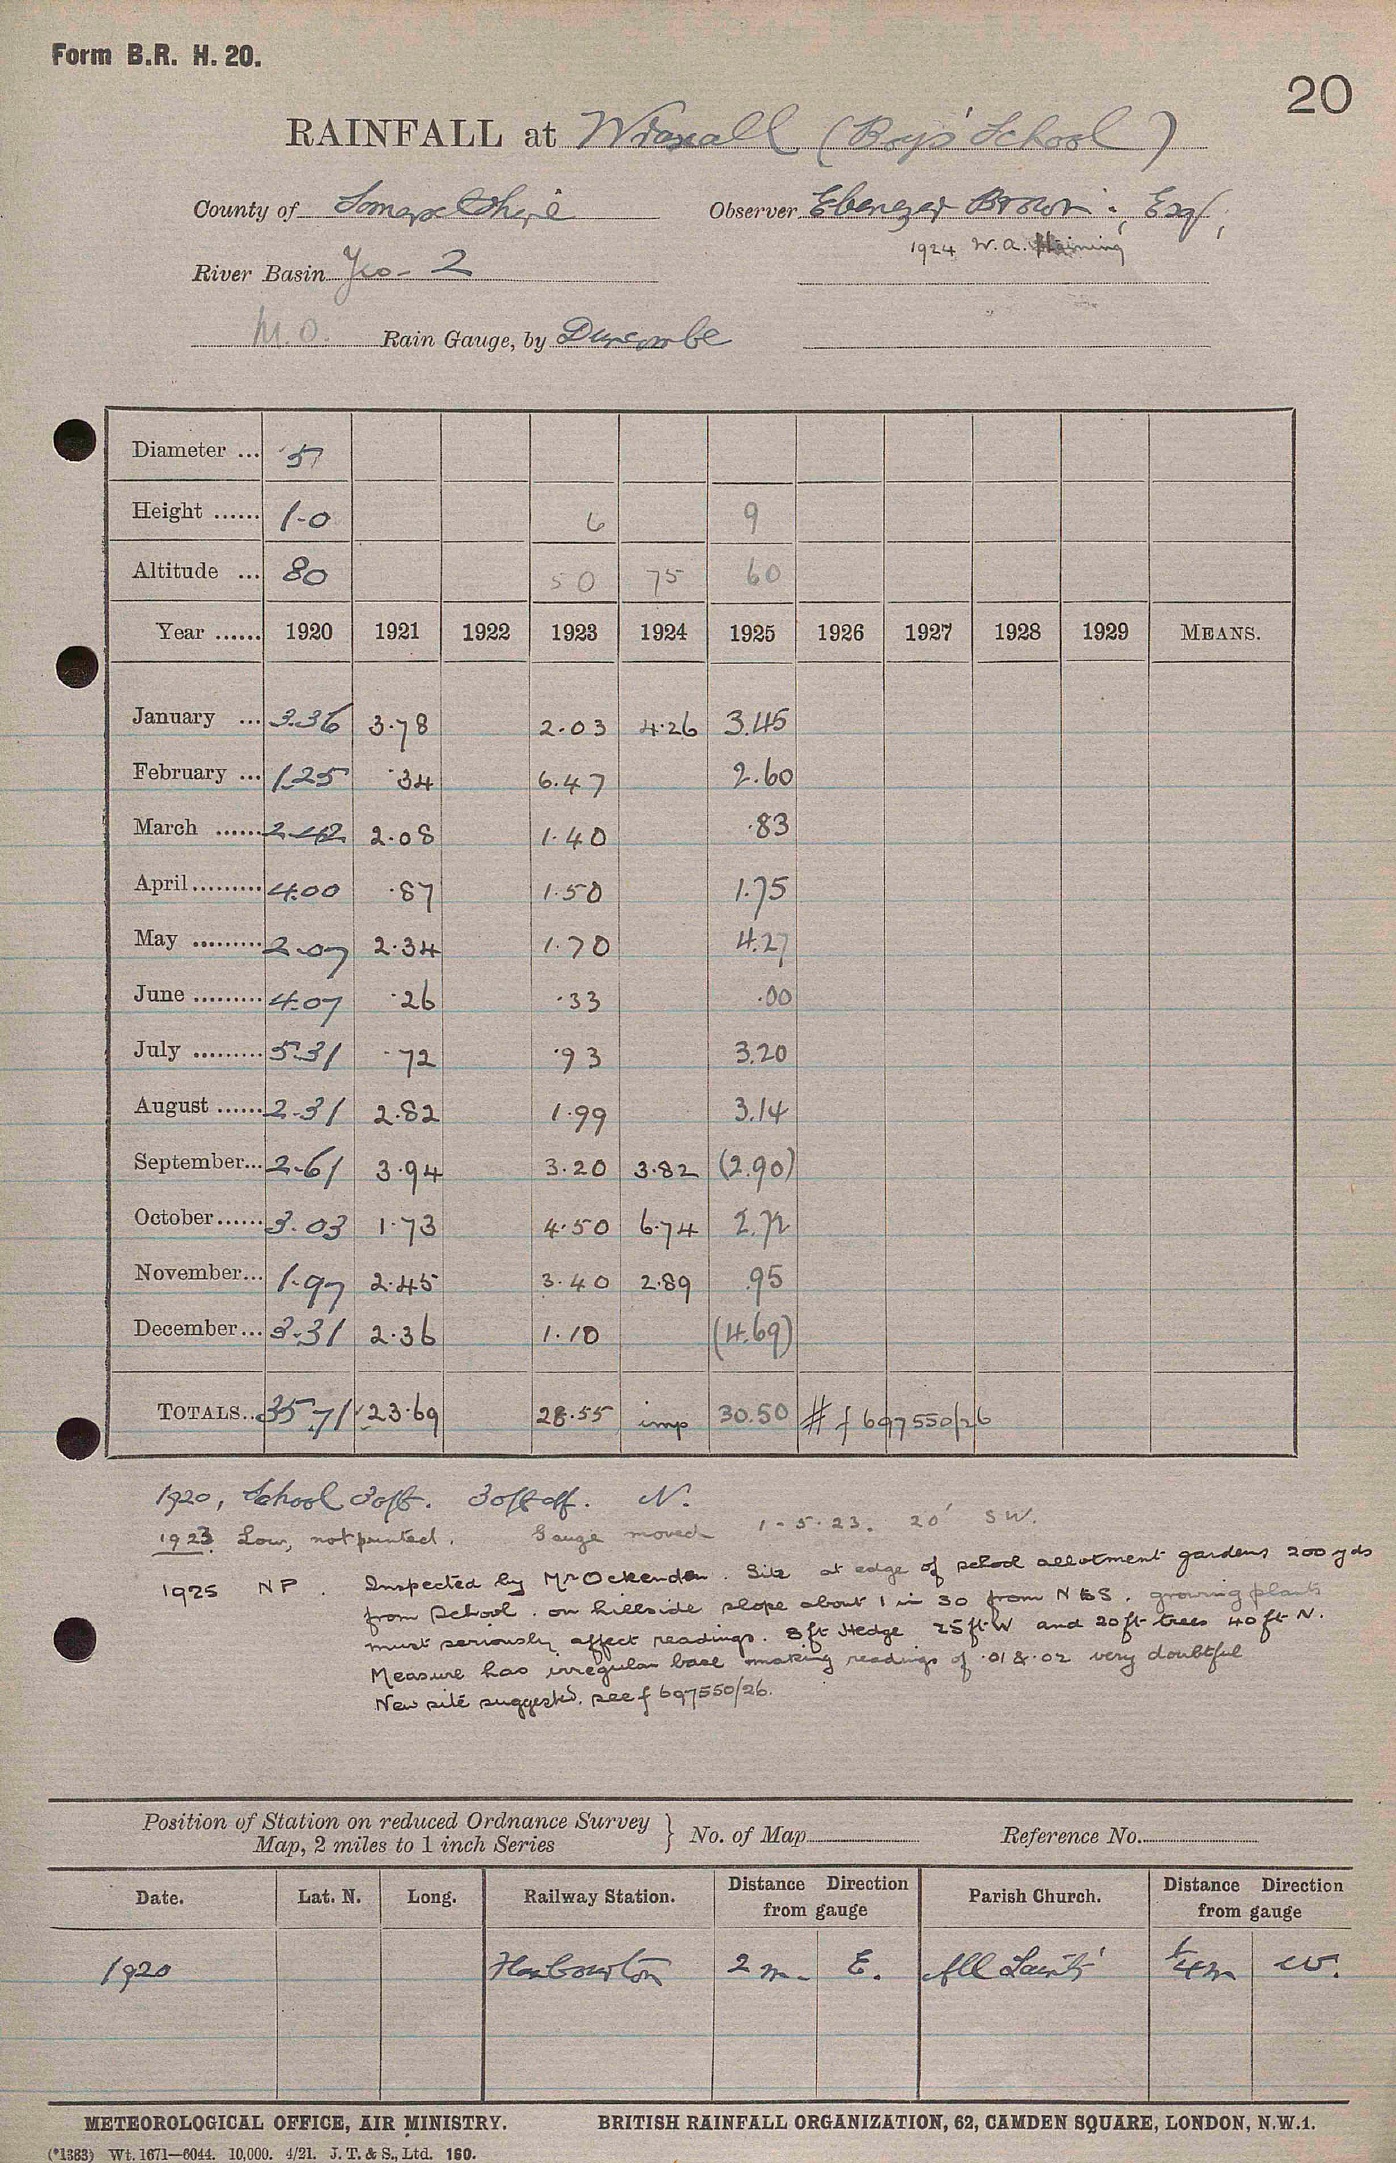 Form B.R. H. 20.
20
RAINFALL at Wraxall (Boys' School)
County of Somersetshire Observer Ebenezer Brown, Esq.,
1924 W. A.
River Basin Yeo - 2
M.O. Rain Gauge, by Duncombe
Diameter ... 5
Height ...... 1-0 6 9
Altitude ... 80 50 75 60
Year ...... 1920 1921 1922 1923 1924 1925 1926 1927 1928 1929 MEANS.
January ... 3.36 3.78 2.03 4.26 3.45
February ... 1.25 .34 6.47 2.60
March ...... 2.42 2.08 1.40 .83
April ......... 4.00 .87 1.50 1.75
May ......... 2.07 2.34 1.70 4.27
June ......... 4.07 .26 .33 .00
July ......... 5.31 .72 .93 3.20
August ...... 2.31 2.82 1.99 3.14
September... 2.61 3.94 3.20 3.82 (2.90)
October...... 3.03 1.73 4.50 6.74 2.72
November... 1.97 2.45 3.40 2.89 .95
December... 3.31 2.36 1.10 (4.69)
TOTALS... 35.71 23.69 28.55 imp 30.50 # f 697550/26
1920, School 30ft. 30ft off. N.
1923 Low, not printed. Gauge moved 1-5-23. 20' SW.
1925 NP. Inspected by Mr Ockenden. Site at edge of school allotment gardens 200 yds
from School. on hillside slope about 1 in 30 from N to S. growing plants
must seriously affect readings. 8ft Hedge 25ft W and 20ft trees 40ft N.
Measure has irregular base making readings of .01 & .02 very doubtful
New site suggested. see f 697550/26.
Position of Station on reduced Ordnance Survey
Map, 2 miles to 1 inch Series } No. of Map Reference No.
Date. Lat. N. Long. Railway Station. Distance Direction from gauge Parish Church. Distance Direction from gauge
1920 2 m. E. All Saints' 1/4 m W.
METEOROLOGICAL OFFICE, AIR MINISTRY. BRITISH RAINFALL ORGANIZATION, 62, CAMDEN SQUARE, LONDON, N.W.1.
(*1383) Wt. 1671—6044. 10,000. 4/21. J. T. & S., Ltd. 160.